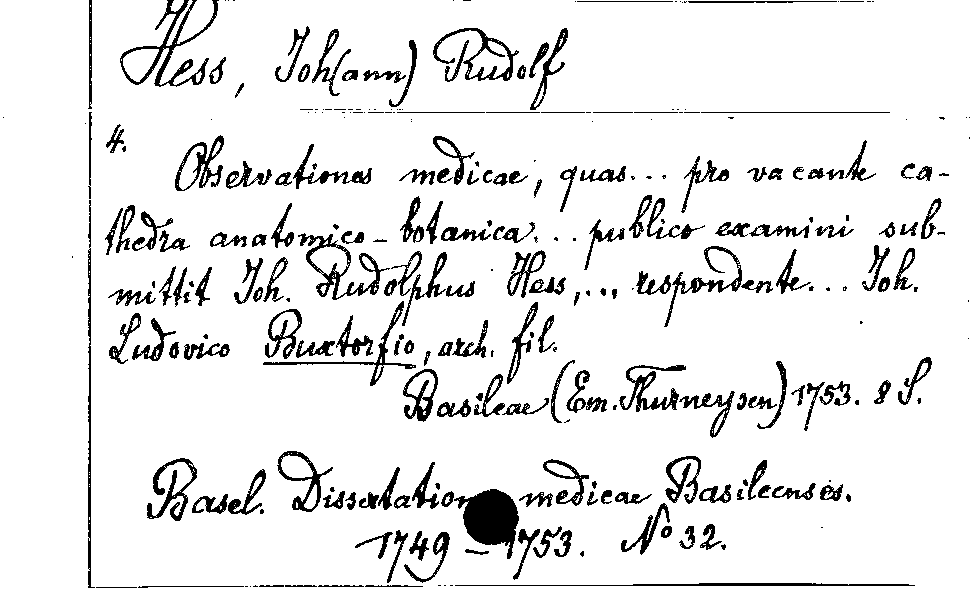 Hess, Joh(ann) Rudolf
4.
Observationes medicae, quas... pro vacante ca-
thedra anatomico-botanica... publico examini sub-
mittit Joh. Rudolphus Hess,... respondente... Joh.
Ludovico Buxtorfio, arch. fil.
Basileae (Em. Thurneysen) 1753. 8 S.
Basel. Dissertationes medicae Basileenses.
1749 – 1753. No 32.